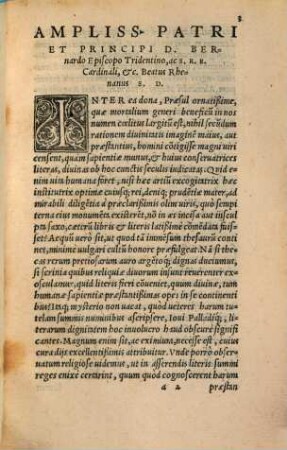 AMPLISS. PATRI
ET PRINCIPI D. BER-
nardo Episcopo Tridentino, ac S. R. E.
Cardinali, &c. Beatus Rhe-
nanus S. D.
INTER ea dona, Præsul ornatissime,
quæ mortalium generi beneficū in nos
numen cœlitus largitū est, nihil secūdum
rationem diuinitatis imaginē maius, aut
præstantius, homini cōtigisse magni uiri
censent, quàm sapientiæ munus, & huius conseruatrices
literas, diuinas ob hoc cunctis seculis iudicatas. Quid
enim uita humana fōret, nisi hæc artiū excogitatrix hæc
institutrix optimæ cuiusq; rei, deniq; prudētiæ mater, ad
mirabili diligētia à præclarissimis olim uiris, quo sempi
terna eius monumēta existerēt, nō in ære incisa aut insculptum
saxo, cæterū libris & literis latissimè cōnedam
set? Atqui uero sit, ut quo id immensum thesauri conti
net, minime uulgari cultū honore præfulgeat. Nā si the
cas rerum preciosarum auro argētoq; dignas ducimus, si
scrinia quibus reliquiæ diuorum insunt reuerenter ex
osculamur, quid literis fieri cōueniet, quum diuinæ, tum
humanæ sapientiæ præstantissimas opes in se continenti
bus? mysterio non uacat, quòd ueteres harum tu-
telam summis numinibus ascripsere, Ioui, Palladiq;,
literarum dignitatem hoc inuolucro haud obscurè signifi
cantes. Magnum enim sit, ac eximium, necesse est, cuius
cura dijs excellentissimis attribuitur. Unde porrò obser-
uatum religiosè uidemus, ut in asserendis literis summi
reges enixe certarint, quum quòd cognoscerent harum
a 2 præstan